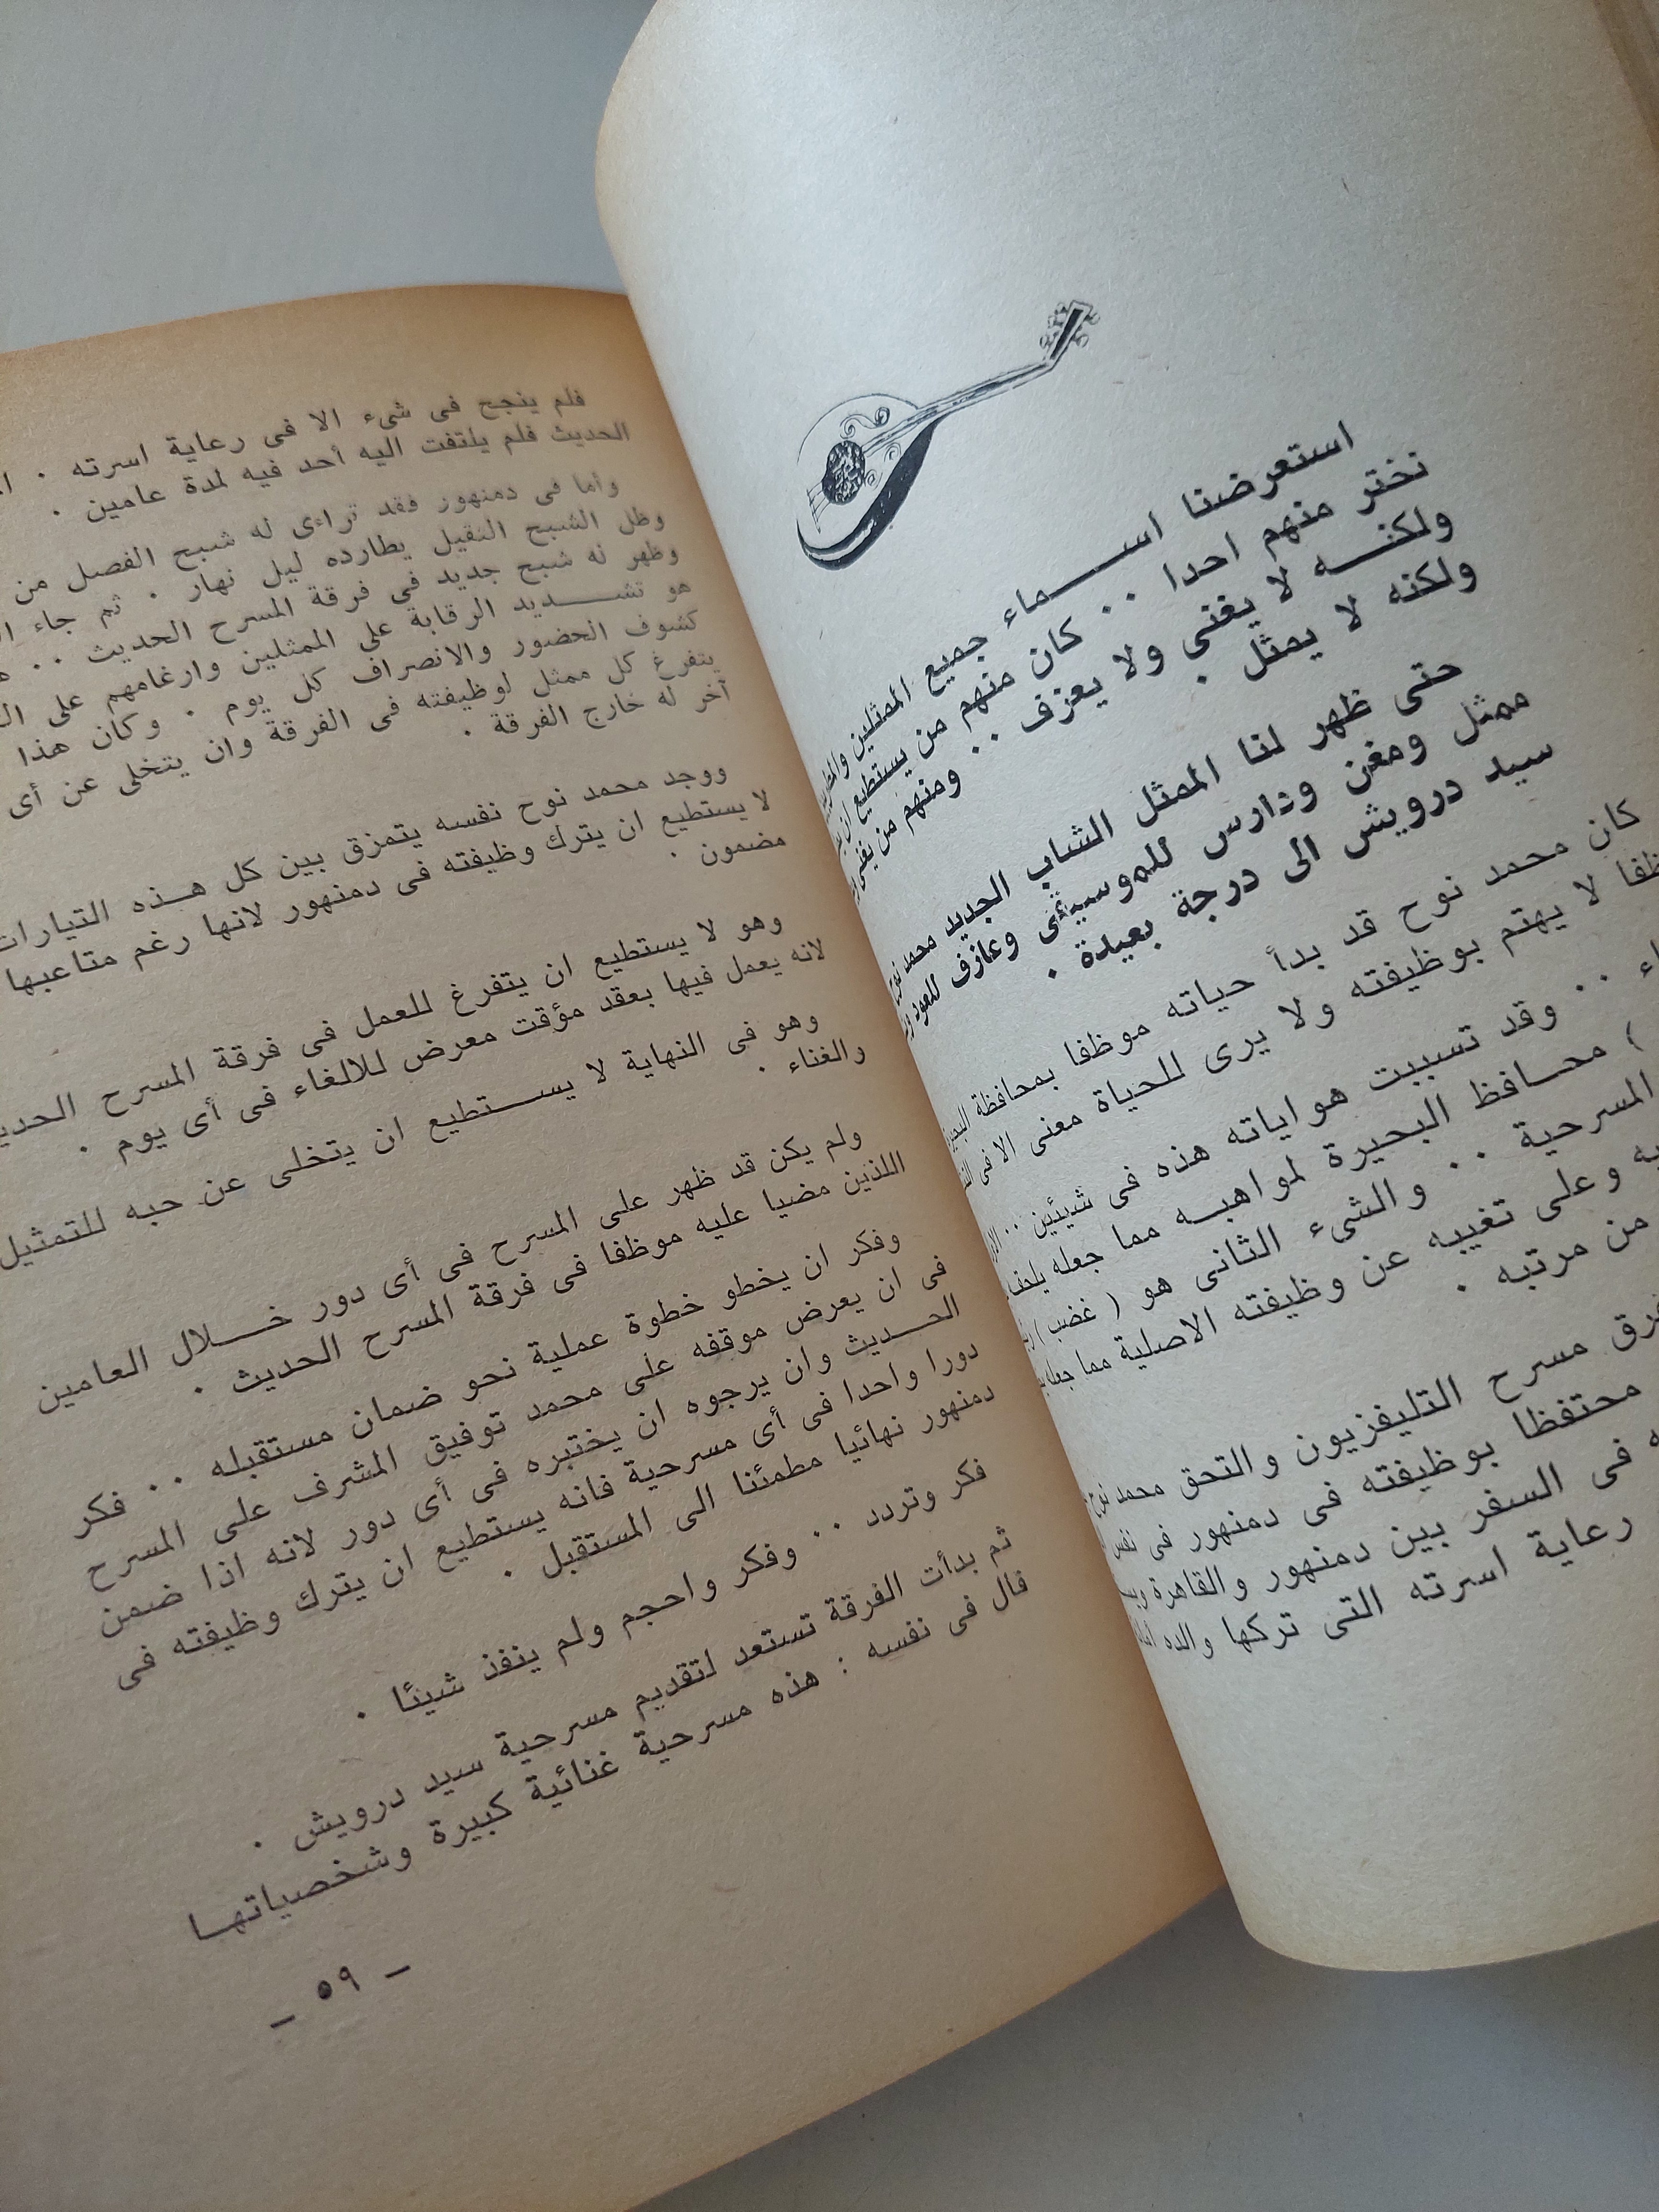 استعرضنا اســـماء جميع الممثلين
نختر منهم احدا . . كان منهم من يستطيع ان
ولكنـــه لا يغنى ولا يعزف . . ومنهم من يغنى
ولكنه لا يمثل .
حتى ظهر لنا الممثل الشاب الجديد محمد نوح
ممثل ومغن ودارس للموسيقى وعازف للعود
سيد درويش الى درجة بعيدة .
كان محمد نوح قد بدأ حياته موظفا بمحافظة
لا يهتم بوظيفته ولا يرى للحياة معنى الا فى
. . وقد تسببت هواياته هذه فى شيئين . .
) محافظ البحيرة لمواهبـه مما جعله
المسرحية . . والشىء الثانى هو ( غضب )
وعلى تغيبه عن وظيفته الاصلية مما جعله
من مرتبه .
مسرح التليفزيون والتحق محمد نوح
محتفظا بوظيفته فى دمنهور فى نفس
فى السفر بين دمنهور والقاهرة
رعاية اسرته التى تركها والده
فلم ينجح فى شىء الا فى رعاية اسرته .
الحديث فلم يلتفت اليه أحد فيه لمدة عامين .
واما فى دمنهور فقد تراءى له شبح الفصل من
وظل الشبح الثقيل يطارده ليل نهار . ثم جاء
وظهر له شبح جديد فى فرقة المسرح الحديث . .
هو تشـــديد الرقابة على الممثلين وارغامهم على
كشوف الحضور والانصراف كل يوم . وكان هذا
يتفرغ كل ممثل لوظيفته فى الفرقة وان يتخلى عن أى
آخر له خارج الفرقة .
ووجد محمد نوح نفسه يتمزق بين كل هـذه التيارات
لا يستطيع ان يترك وظيفته فى دمنهور لانها رغم متاعبها
مضمون .
وهو لا يستطيع ان يتفرغ للعمل فى فرقة المسرح
لانه يعمل فيها بعقد مؤقت معرض للالغاء فى أى يوم .
وهو فى النهاية لا يســـتطيع ان يتخلى عن حبه للتمثيل
والغناء .
ولم يكن قد ظهر على المسرح فى أى دور خـــلال العامين
اللذين مضيا عليه موظفا فى فرقة المسرح الحديث .
وفكر ان يخطو خطوة عملية نحو ضمان مستقبله . . فكر
فى ان يعرض موقفه على محمد توفيق المشرف على المسرح
الحـــديث وان يرجوه ان يختبره فى أى دور لانه اذا ضمن
دورا واحدا فى أى مسرحية فانه يستطيع ان يترك وظيفته فى
دمنهور نهائيا مطمئنا الى المستقبل .
فكر وتردد . . وفكر واحجم ولم ينفذ شيئا .
ثم بدأت الفرقة تستعد لتقديم مسرحية سيد درويش .
قال فى نفسه : هذه مسرحية غنائية كبيرة وشخصياتهـا
– ٥٩ –